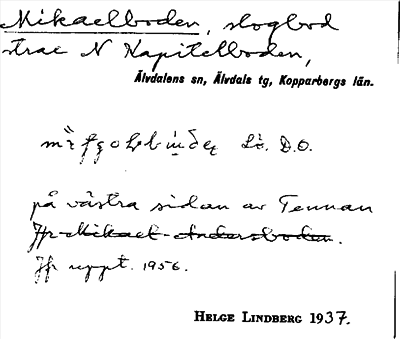 Mikaelboden, slogbod
strax N Kapitelboden,
Älvdalens sn, Älvdals tg, Kopparbergs län.
Lò. D.O.
på västra sidan av Tennan
Jfr Mikael-Andersboden.
Jfr uppt. 1956.
HELGE LINDBERG 1937.